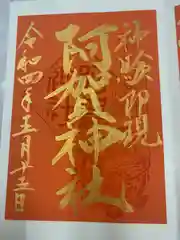 神験即現
阿賀神社
令和四年五月廿五日